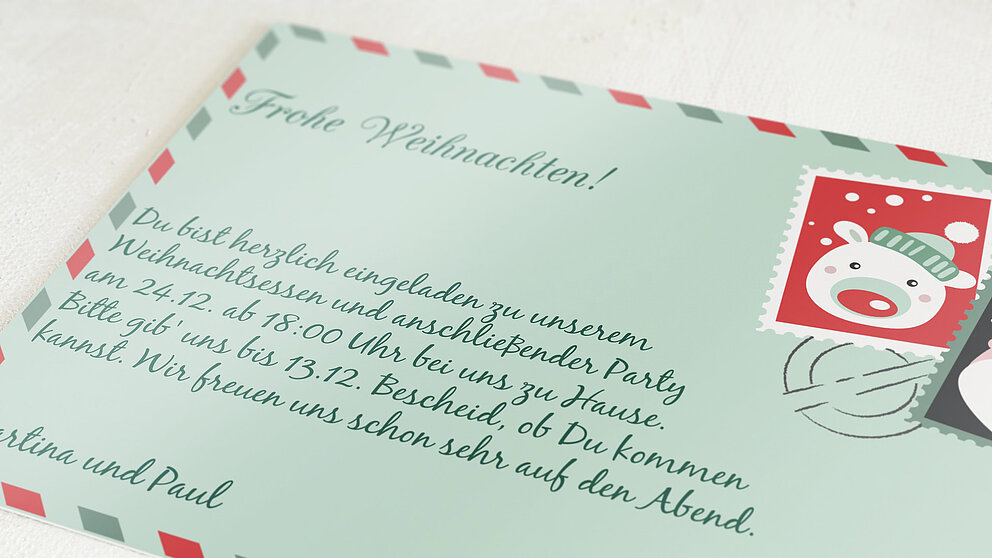 Frohe Weihnachten!
Du bist herzlich eingeladen zu unserem
Weihnachtsessen und anschließender Party
am 24.12. ab 18:00 Uhr bei uns zu Hause.
Bitte gib' uns bis 13.12. Bescheid, ob Du kommen
kannst. Wir freuen uns schon sehr auf den Abend.
artina und Paul